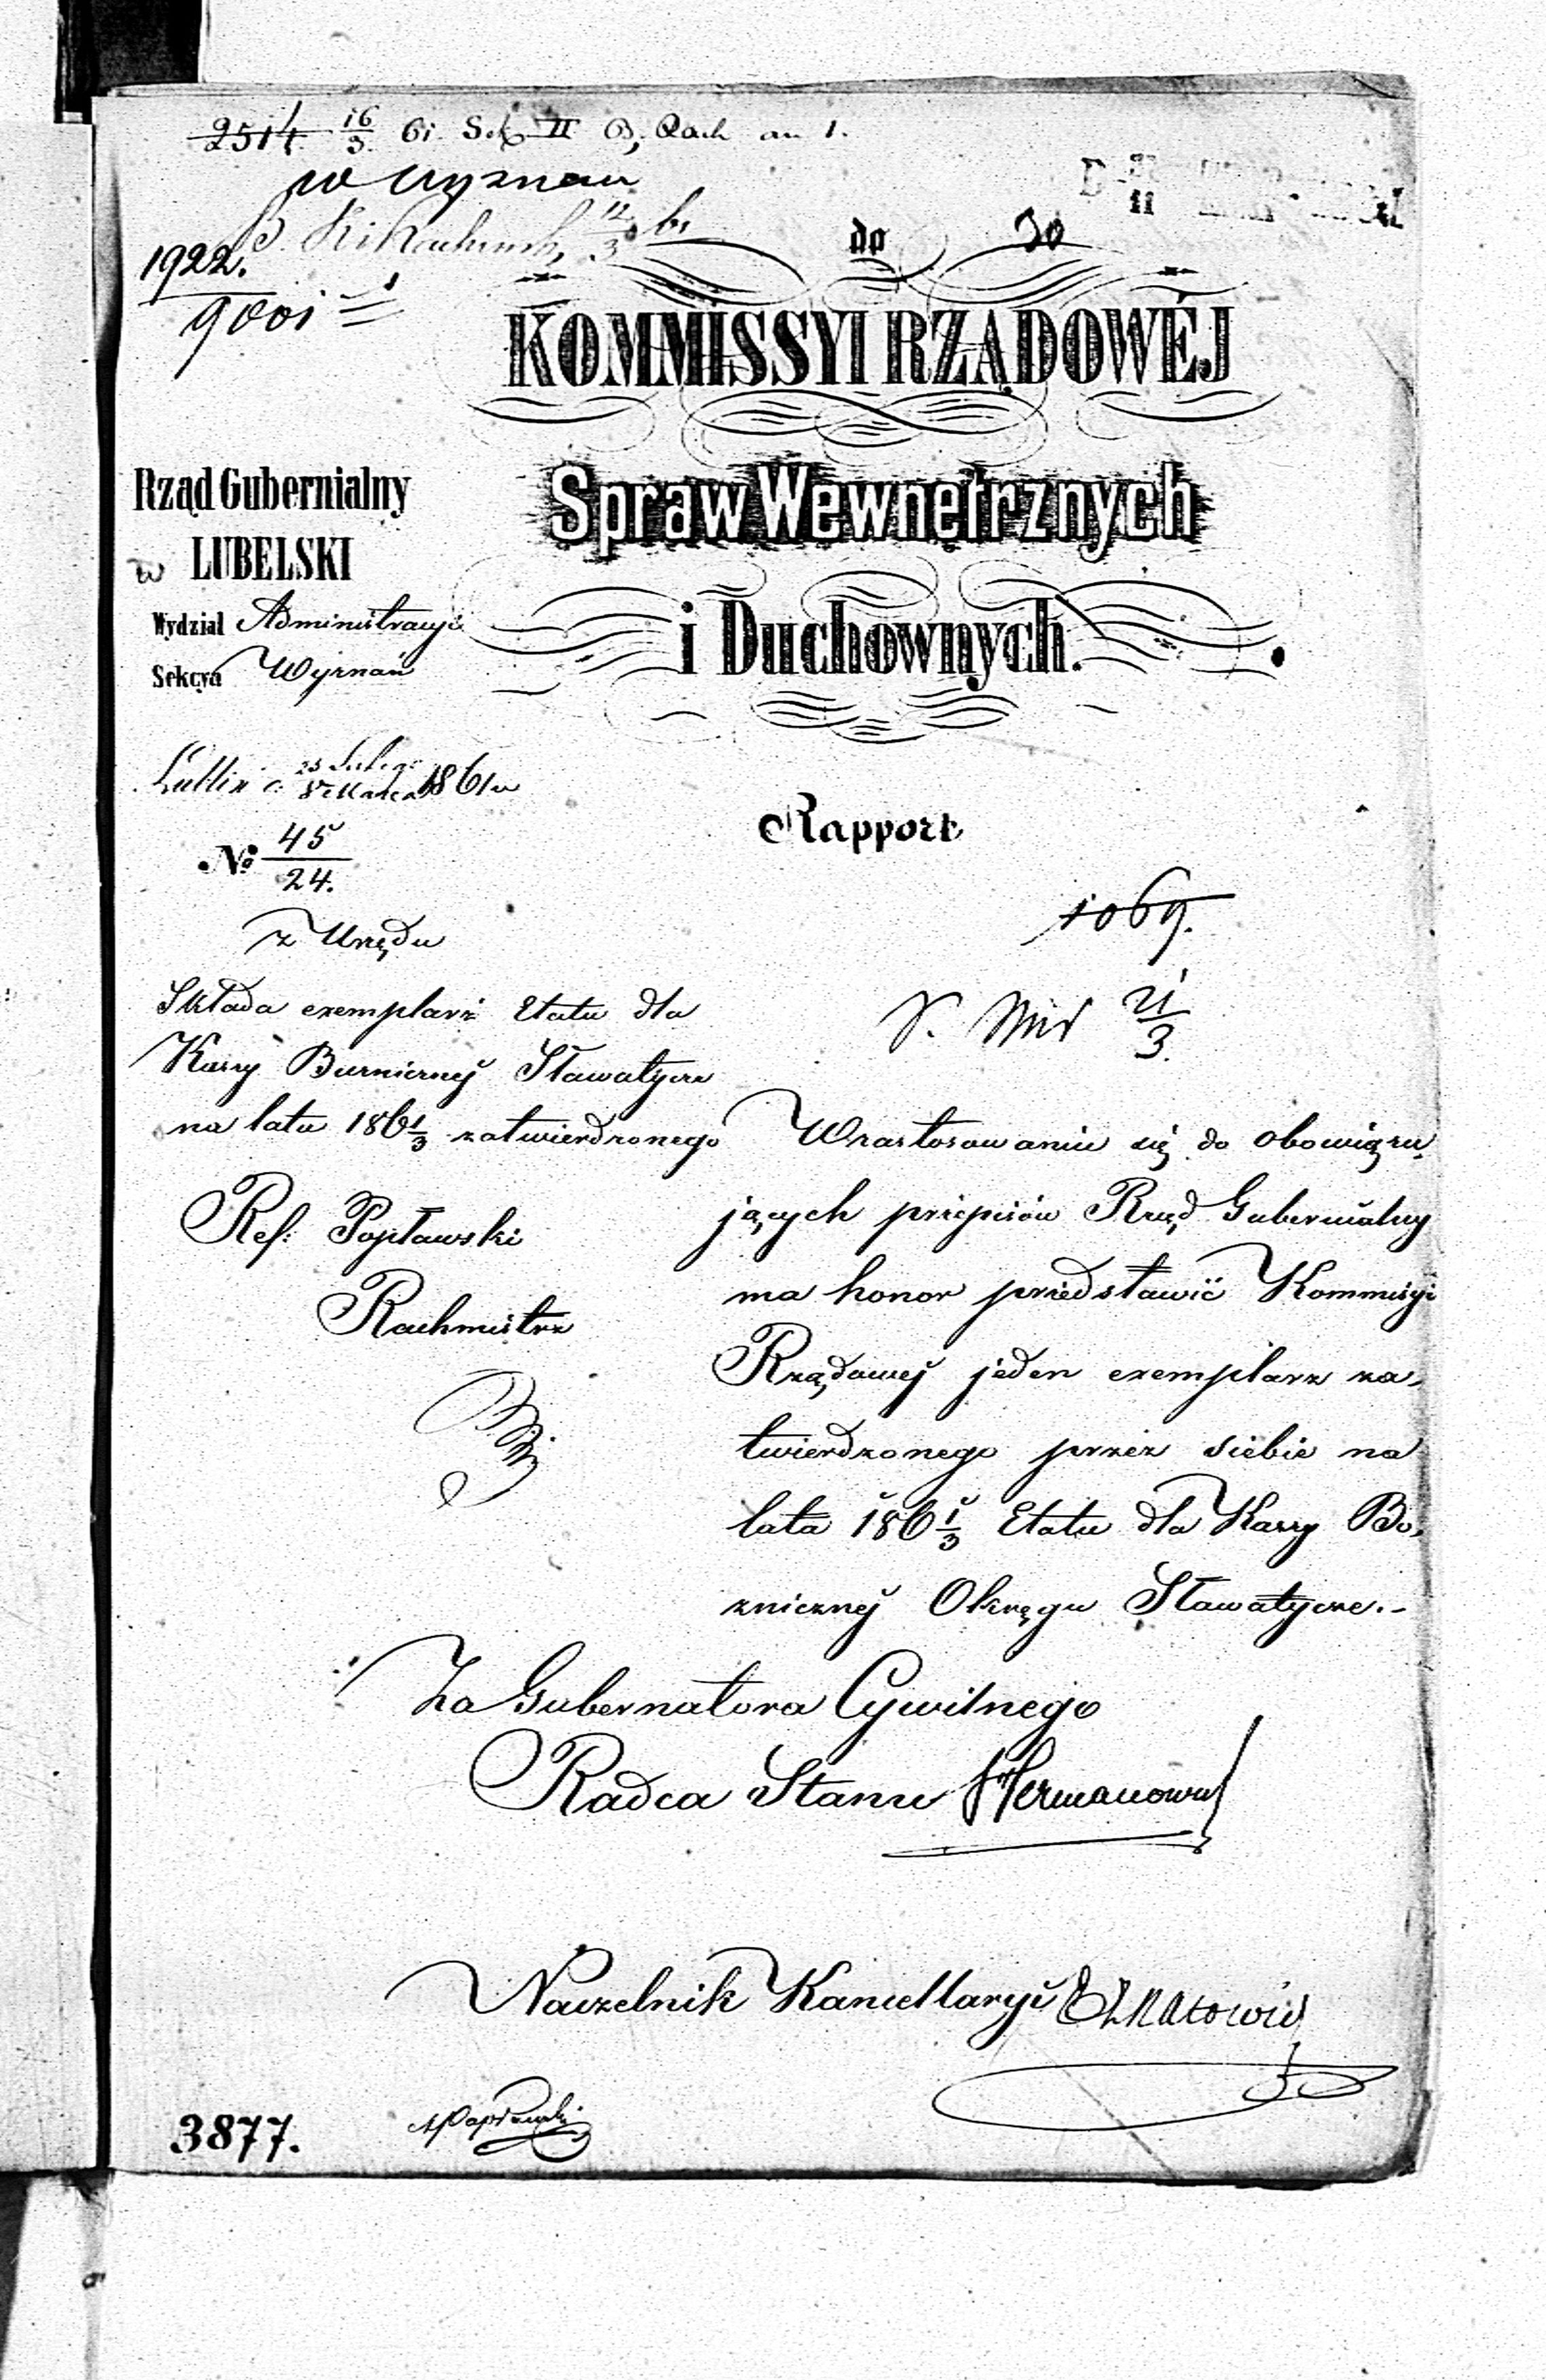 2514. 16/3 61 Sek II B, Rach an 1.
w Wyznan
12/3 61
1922.
9001
do
KOMMISSYI RZĄDOWÉJ
Spraw Wewnętrznych
i Duchownych.
Rząd Gubernialny
LUBELSKI
Wydział Administracyi
Sekcya Wyznań
Lublin d. 25 Lutego / Marca 1861 r
№ 45/24.
z Urzędu
Składa exemplarz Etatu dla
Kassy Bużnicznej Sławatycze
na lata 186 1/3 zatwierdzonego
Ref: Popławski
Rachmistrz
Rapport
1069.
21/3.
W zastosowaniu się do obowiązu,
jących przepisów Rząd Gubernialny
ma honor przedstawić Kommisyi
Rządowej jeden exemplarz za,
twierdzonego przez siebie na
lata 186 1/3 Etatu dla Kassy Bo,
znicznej Okręgu Sławatycze.-
Za Gubernatora Cywilnego
Radca Stanu Hermanowicz
Naczelnik Kancellaryi
3877.